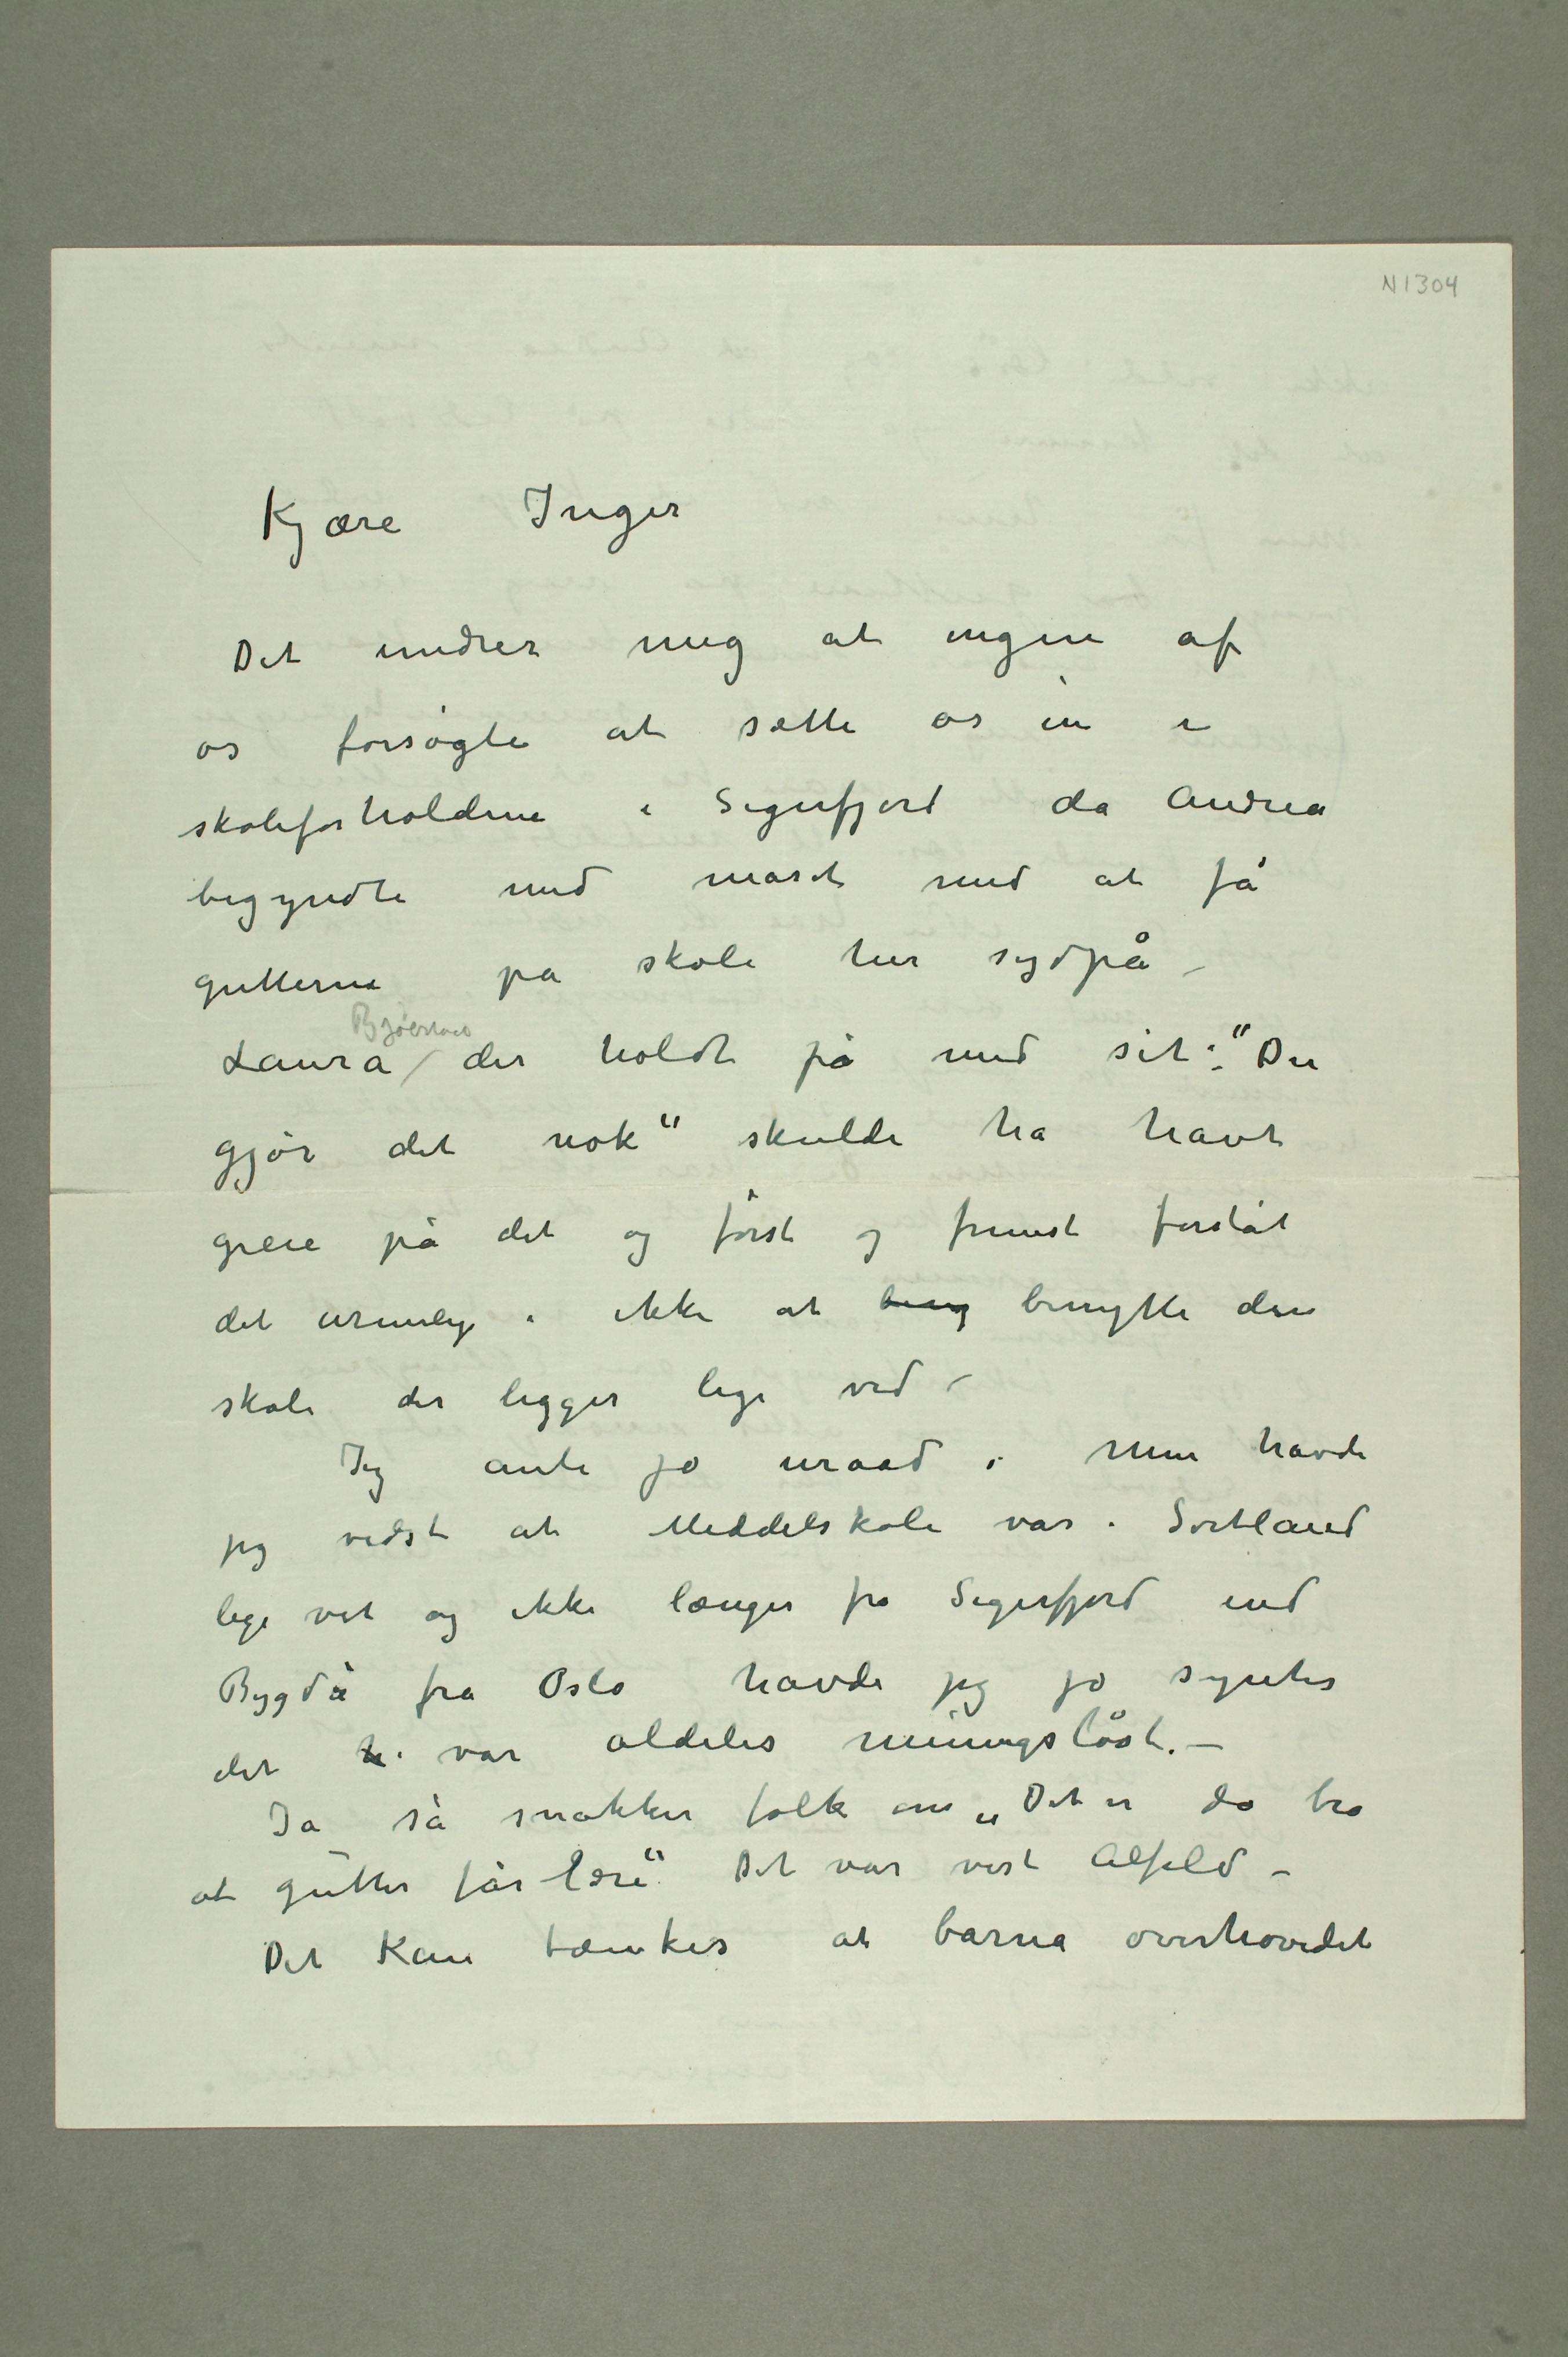 N1304
Kjære Inger
Det undrer mig at ingen af
os forsøgte at sætte os in i
skoleforholdene i Sigerfjord da Andrea
begyndte med maset med at få
gutterne på skole her sydpå –
Laura / der holdt på med sit: "Du
gjør det nok" skulde ha havt
greie på det og først og fremst forståt
det urimelige i ikke at beny benytte den
skole der ligger lige ved –
Jeg ante jo uraad i men havde
jeg vidst at Middelskole var i Sortland
lige vet og ikke længer fra Sigerfjord end
Bygdø fra Oslo havde jeg jo syntes
det var aldeles meningsløst. –
Ja så snakker folk om „Det er da bra
at gutter får lære" Det var vist Alfild –
Det kan tænkes at barna overhovedet